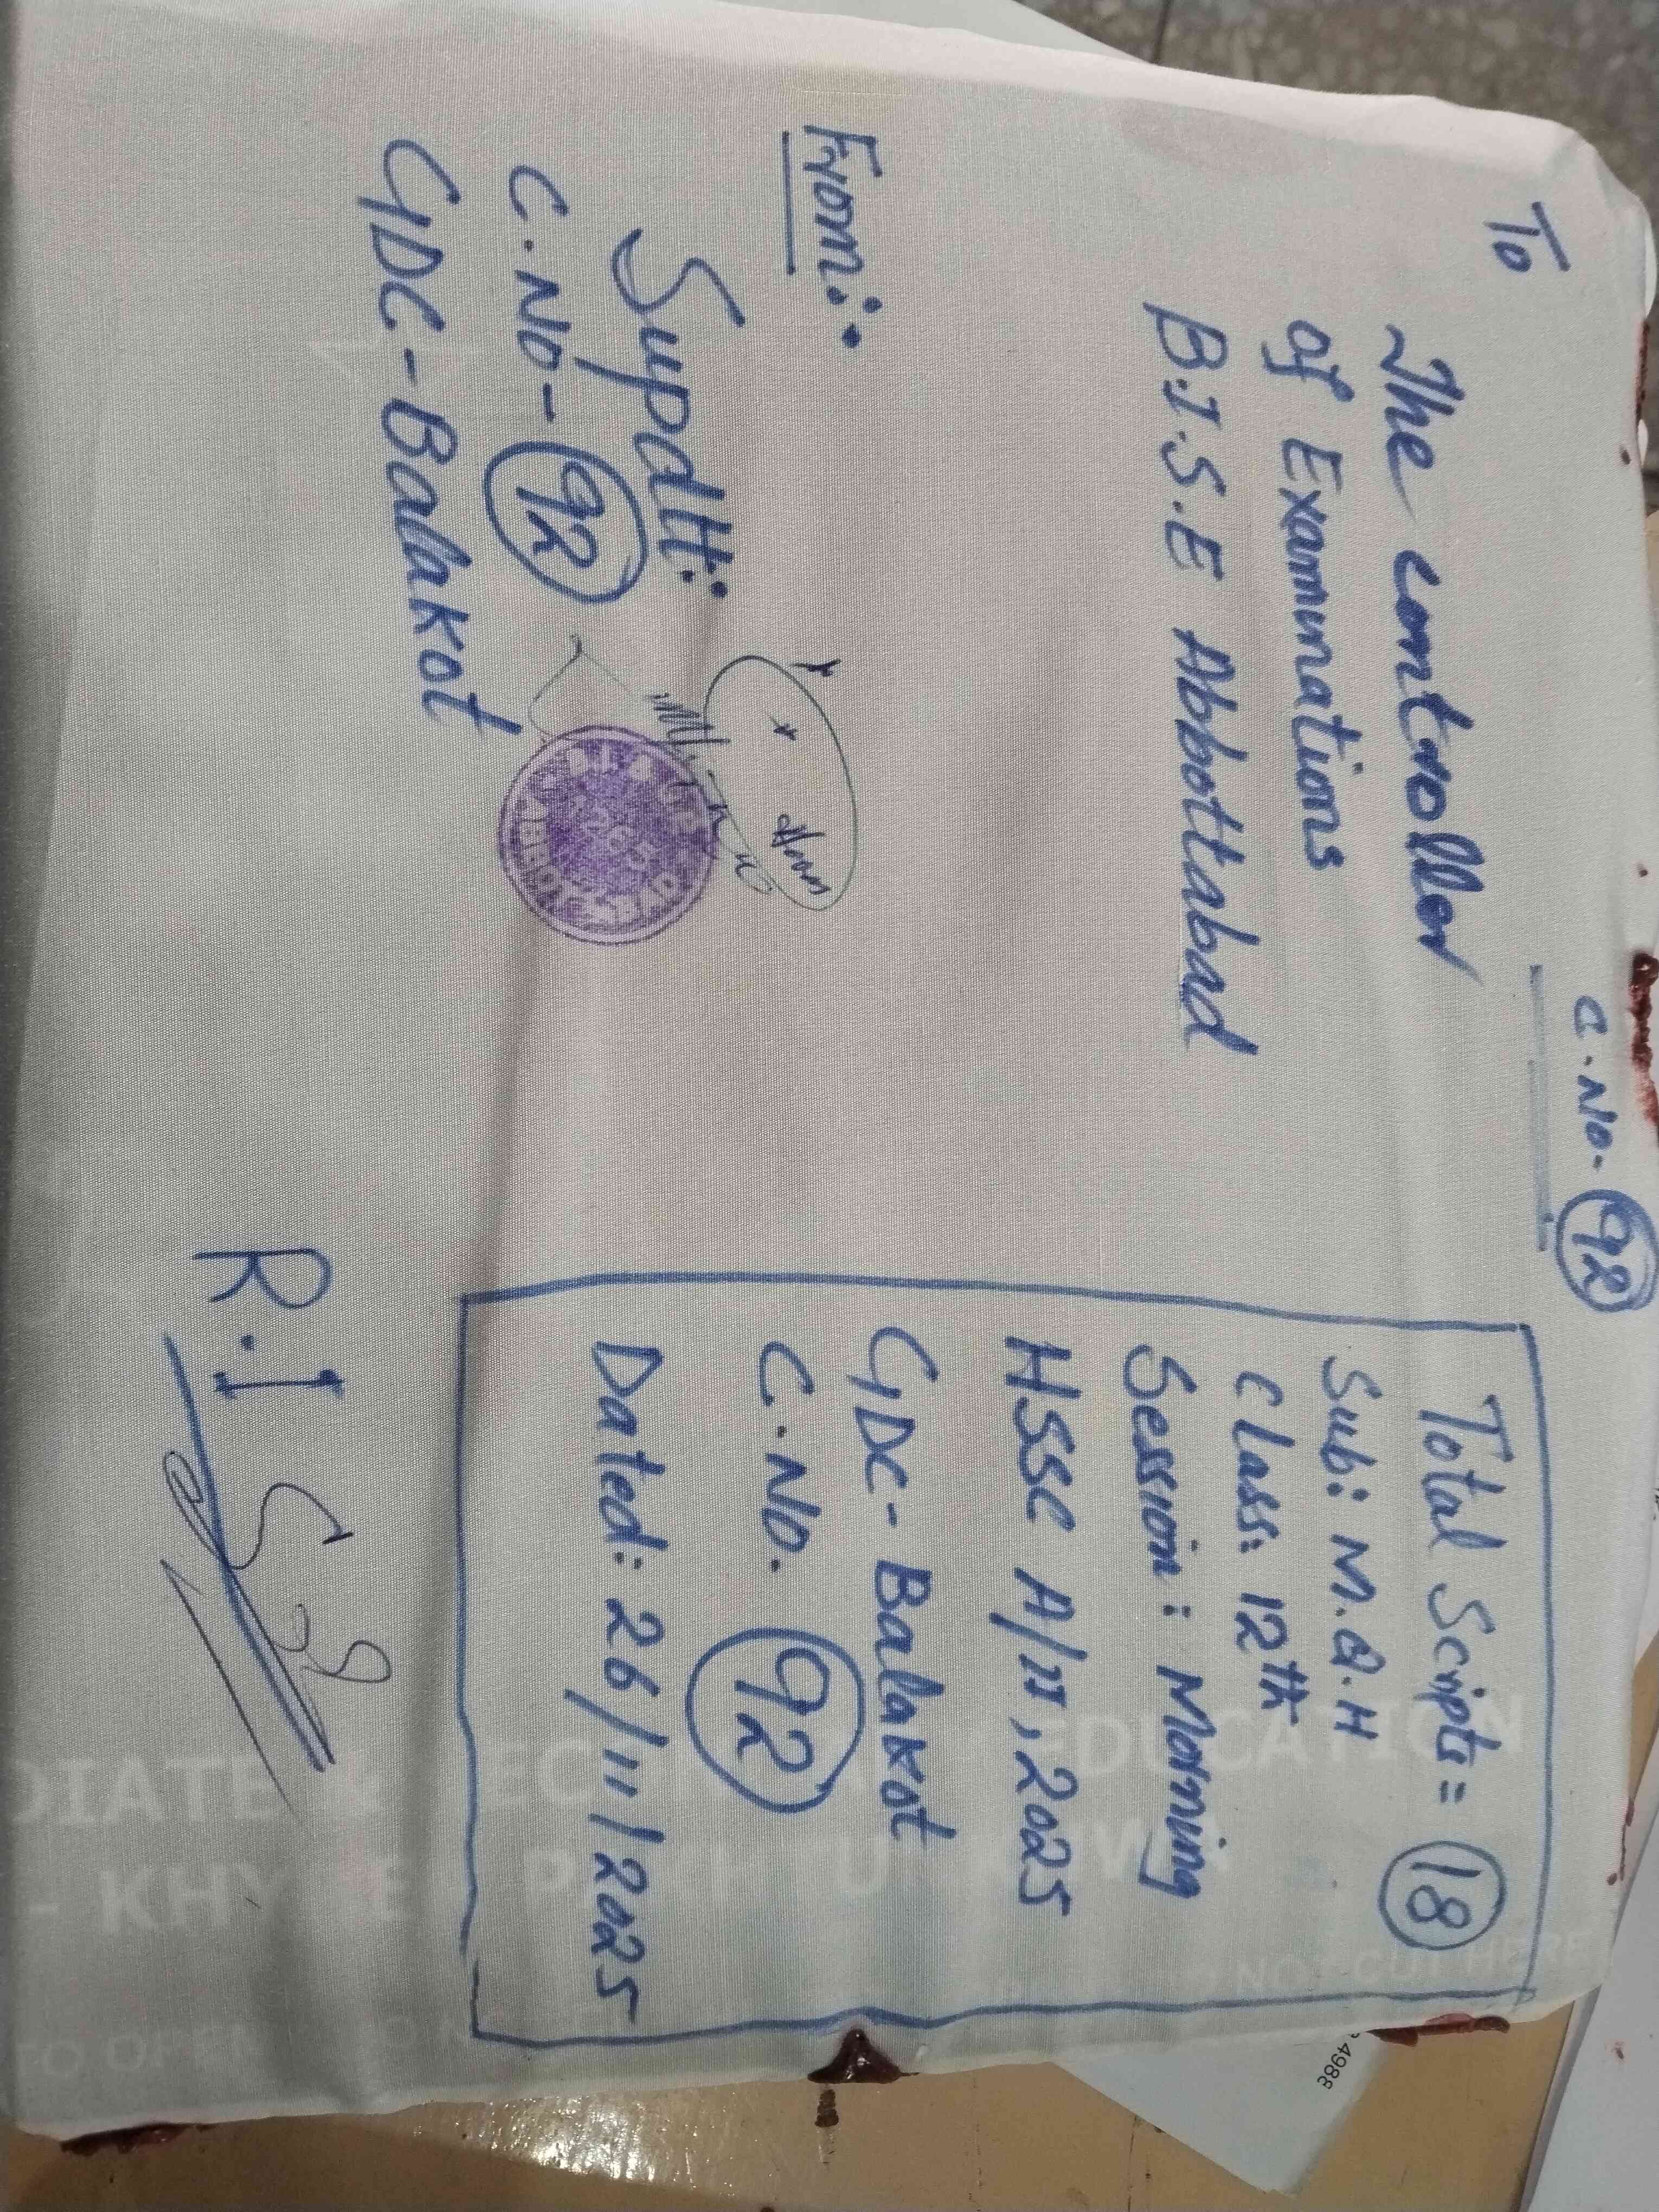 C.No- 92
To
The Controller
of Examinations
B.I.S.E Abbottabad
From:
Supdtt:
C.No- 92
GDC-Balakot
Total Scripts = 18
Sub: M.Q.H
Class: 12th
Session: Morning
HSSC A/II, 2025
GDC-Balakot
C.No. 92
Dated: 26/11/2025
R.I
EDUCATION
DIATE &
- KHY
NOT CUT HERE
TO OPEN
4988